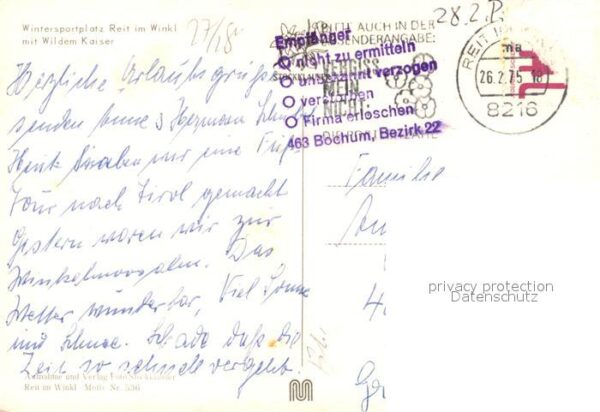 Wintersportplatz Reit im Winkl
mit Wildem Kaiser
27/18
28.2.
BITTE AUCH IN DER
ABSENDERANGABE:
VERGISS
MEIN
NICHT
DIE POSTLEITZAHL
Empfänger
nicht zu ermitteln
unbekannt verzogen
verzogen
Firma erloschen
463 Bochum, Bezirk 22
REIT IM
ma
26.2.75-18
8216
Herzliche Urlaubsgrüsse
senden Anne & Hermann
Heute haben wir eine
Tour nach Tirol gemacht
Gestern waren wir zur
Winkelmoosalm. Das
Wetter wunderbar, Viel Sonne
und Schnee. Schade daß die
Zeit so schnell vergeht.
Familie
privacy protection
Datenschutz
Aufnahme und Verlag Foto Stöcklhuber
Reit im Winkl - Motiv Nr. 536